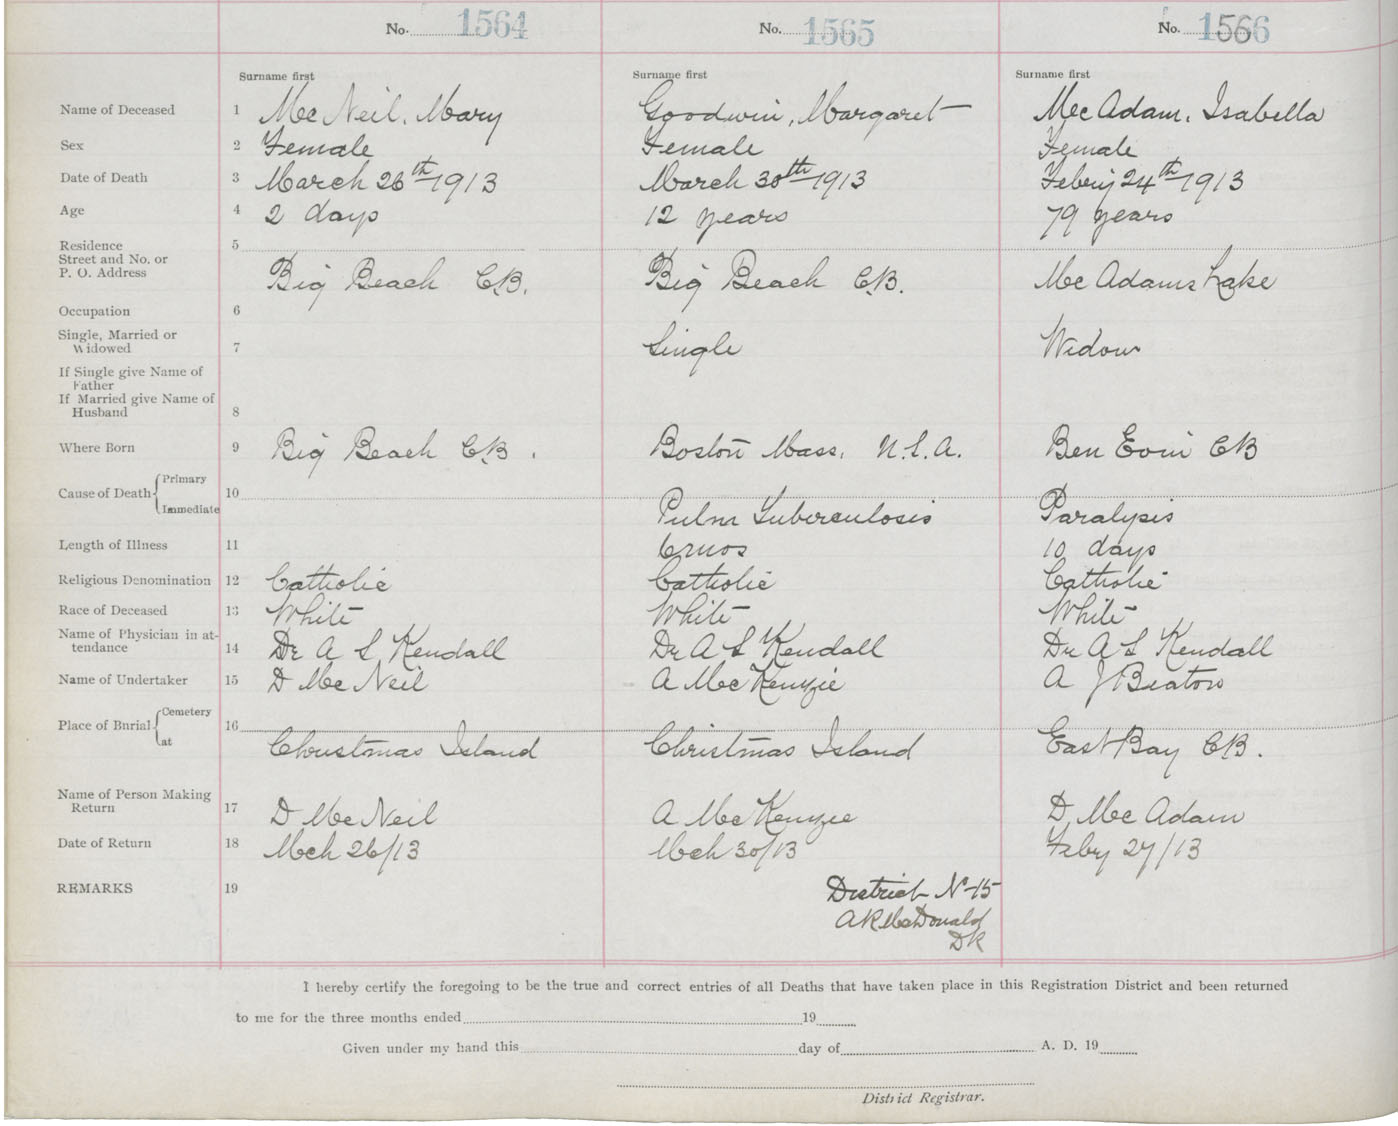 No. 1564 No. 1565 No. 1566
Surname first Surname first Surname first
Name of Deceased 1 Mc Neil, Mary Goodwin, Margaret Mc Adam, Isabella
Sex 2 Female Female Female
Date of Death 3 March 26th 1913 March 30th 1913 Febry 24th 1913
Age 4 2 days 12 years 79 years
Residence 5
Street and No. or
P. O. Address Big Beach C.B. Big Beach C.B. Mc Adams Lake
Occupation 6
Single, Married or
Widowed 7 Single Widow
If Single give Name of
Father
If Married give Name of
Husband 8
Where Born 9 Big Beach C.B. Boston Mass. U.S.A. Ben Eoin CB
Cause of Death Primary 10
Immediate Pulmr Tuberculosis Paralysis
Length of Illness 11 6 mos 10 days
Religious Denomination 12 Catholic Catholic Catholic
Race of Deceased 13 White White White
Name of Physician in at-
tendance 14 Dr A S Kendall Dr A S Kendall Dr A S Kendall
Name of Undertaker 15 D Mc Neil A Mc Kenzie A J Beaton
Place of Burial Cemetery 16
at Christmas Island Christmas Island East Bay C.B.
Name of Person Making
Return 17 D Mc Neil A Mc Kenzie D. Mc Adam
Date of Return 18 Mch 26/13 Mch 30/13 Feby 27/13
REMARKS 19 District No 15
A R McDonald
DR
I hereby certify the foregoing to be the true and correct entries of all Deaths that have taken place in this Registration District and been returned
to me for the three months ended 19
Given under my hand this day of A. D. 19
District Registrar.